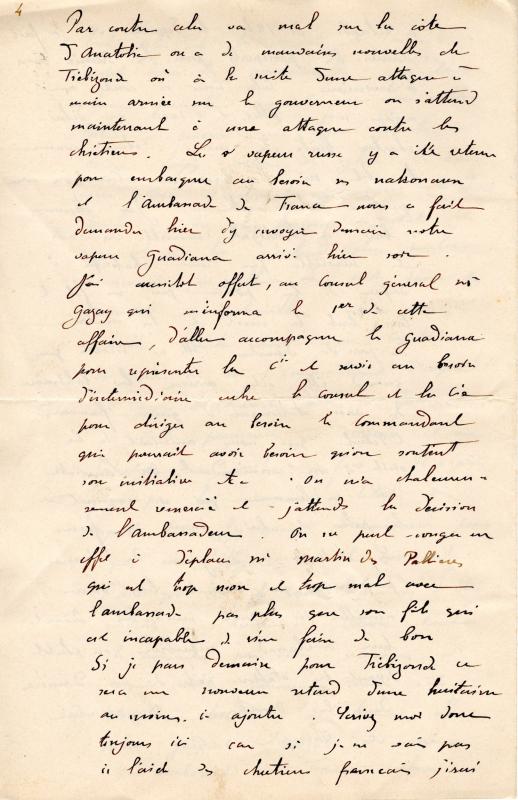 4
Par contre cela va mal sur la côte
d'Anatolie on a de mauvaises nouvelles de
Trébizonde où à la suite d'une attaque à
main armée sur le gouverneur on s'attend
maintenant à une attaque contre les
chrétiens. Le vapeur russe y a été retenu
pour embarquer au besoin ses nationaux
et l'Ambassade de France nous a fait
demander hier d'y envoyer demain notre
vapeur Guadiana arrivé hier soir.
J'ai aussitôt offert, au Consul général Mr
Gazay qui m'informa le 1er de cette
affaire, d'aller accompagner le Guadiana
pour représenter la Cie et servir au besoin
d'intermédiaire entre le consul et la Cie
pour diriger au besoin le Commandant
qui pourrait avoir besoin qu'on soutent
son initiative. On m'a chaleureu-
sement remercié et j'attends la décision
de l'ambassadeur. On ne peut songer en
effet à déplacer Mr Martin des Pallières
qui est trop mou et trop mal avec
l'ambassade pas plus que son fils qui
est incapable de rien faire de bon
Si je pars demain pour Trébizonde ce
sera un nouveau retard d'une huitaine
au moins à ajouter. Ecrivez moi donc
toujours ici car si je ne vais pas
à l'aide des chrétiens français j'irai